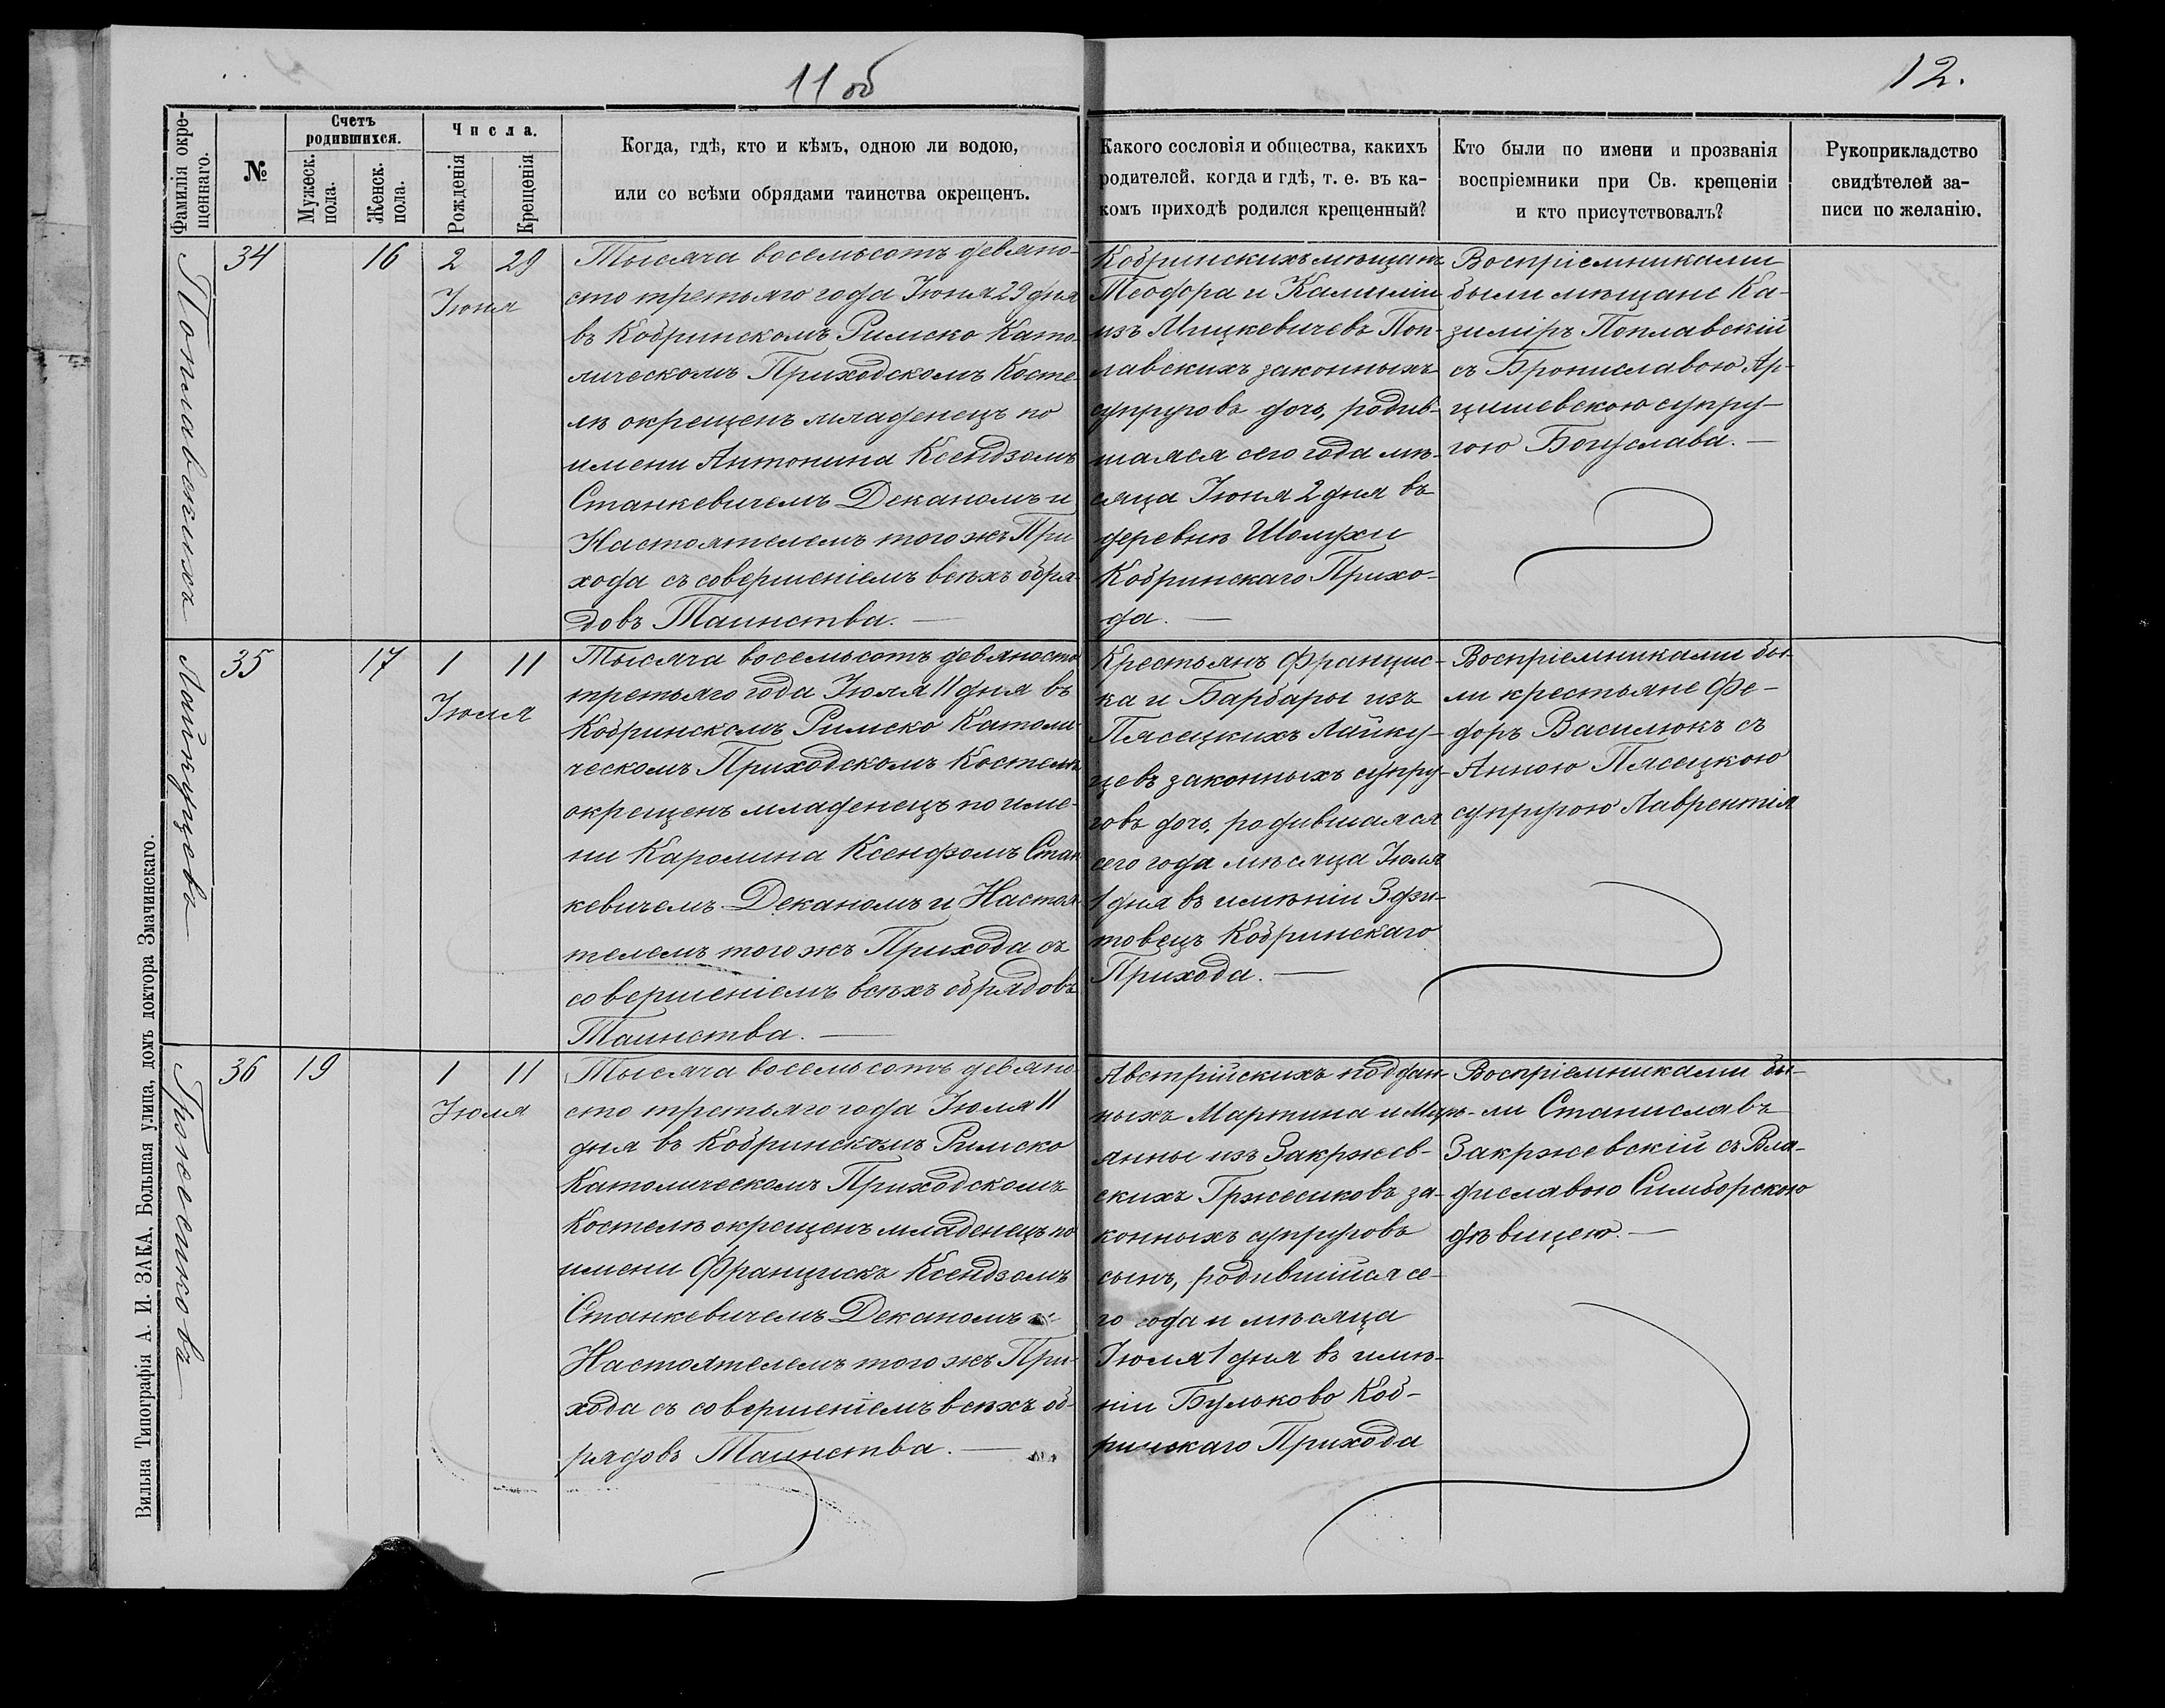 11 об
12.
Фамилія окре-
щеннаго.
№
Счетъ
родившихся.
Мужеск.
пола.
Женск.
пола.
Числа.
Рожденія
Крещенія
Когда, гдѣ, кто и кѣмъ, одною ли водою,
или со всѣми обрядами таинства окрещенъ.
Какого сословія и общества, какихъ
родителей, когда и гдѣ, т. е. въ ка-
комъ приходѣ родился крещенный?
Кто были по имени и прозванія
воспріемники при Св. крещеніи
и кто присутствовалъ?
Рукоприкладство
свидѣтелей за-
писи по желанію.
Поплавскихъ
34
16
2 29
Іюня
Тысяча восемьсотъ девяно-
сто третьяго года Іюня 29 дня
въ Кобринскомъ Римско Като-
лическомъ Приходскомъ Косте-
лѣ окрещенъ младенецъ по
имени Антонина Ксендзомъ
Станкевичемъ Деканомъ и
Настоятелемъ того жъ При
хода съ совершеніемъ всѣхъ обря-
довъ Таинства. —
Кобринскихъ мѣщанъ
Теофора и Камиліи
изъ Мицкевичевъ Поп-
лавскихъ законныхъ
супруговъ дочь, родив-
шаяся сего года мѣ-
сяца Іюня 2 дня въ
деревнѣ Шолухи
Кобринскаго Прихо-
да. —
Воспріемниками
были мѣщане Ка-
зиміръ Поплавскій
съ Брониславою Ар-
цишевскою супру-
гою Богуслава. —
Лайкуцевъ
35
17
1 11
Іюля
Тысяча восемьсотъ девяносто
третьяго года Іюля 11 дня въ
Кобринскомъ Римско Католи-
ческомъ Приходскомъ Костелѣ
окрещенъ младенецъ по име-
ни Каролина Ксендзомъ Стан
кевичемъ Деканомъ и Настоя-
телемъ того жъ Прихода съ
совершеніемъ всѣхъ обрядовъ
Таинства. —
Крестьянъ Францис-
ка и Барбары изъ
Пясецкихъ Лайку-
цевъ законныхъ супру-
говъ дочь, родившаяся
сего года мѣсяца Іюля
1 дня въ имѣніи Зди-
товецъ Кобринскаго
Прихода. —
Воспріемниками бы-
ли крестьяне Фе-
доръ Василюкъ съ
Анною Пясецкою
супругою Лаврентія
Гржесиковъ
36
19
1 11
Іюля
Тысяча восемьсотъ девяно-
сто третьяго года Іюля 11
дня въ Кобринскомъ Римско
Католическомъ Приходскомъ
Костелѣ окрещенъ младенецъ по
имени Францискъ Ксендзомъ
Станкевичемъ Деканомъ и
Настоятелемъ того жъ При-
хода съ совершеніемъ всѣхъ об-
рядовъ Таинства. —
Австрійскихъ поддан-
ныхъ Мартина и Марь-
янны изъ Закржев-
скихъ Гржесиковъ за-
конныхъ супруговъ
сынъ, родившійся се-
го года и мѣсяца
Іюля 1 дня въ имѣ-
ніи Бульково Коб-
ринскаго Прихода
Воспріемниками бы-
ли Станиславъ
Закржевскій съ Вла-
диславою Симборскою
дѣвицею. —
Вильна Типографія А. И. ЗАКА, Большая улица, домъ доктора Змачинскаго.